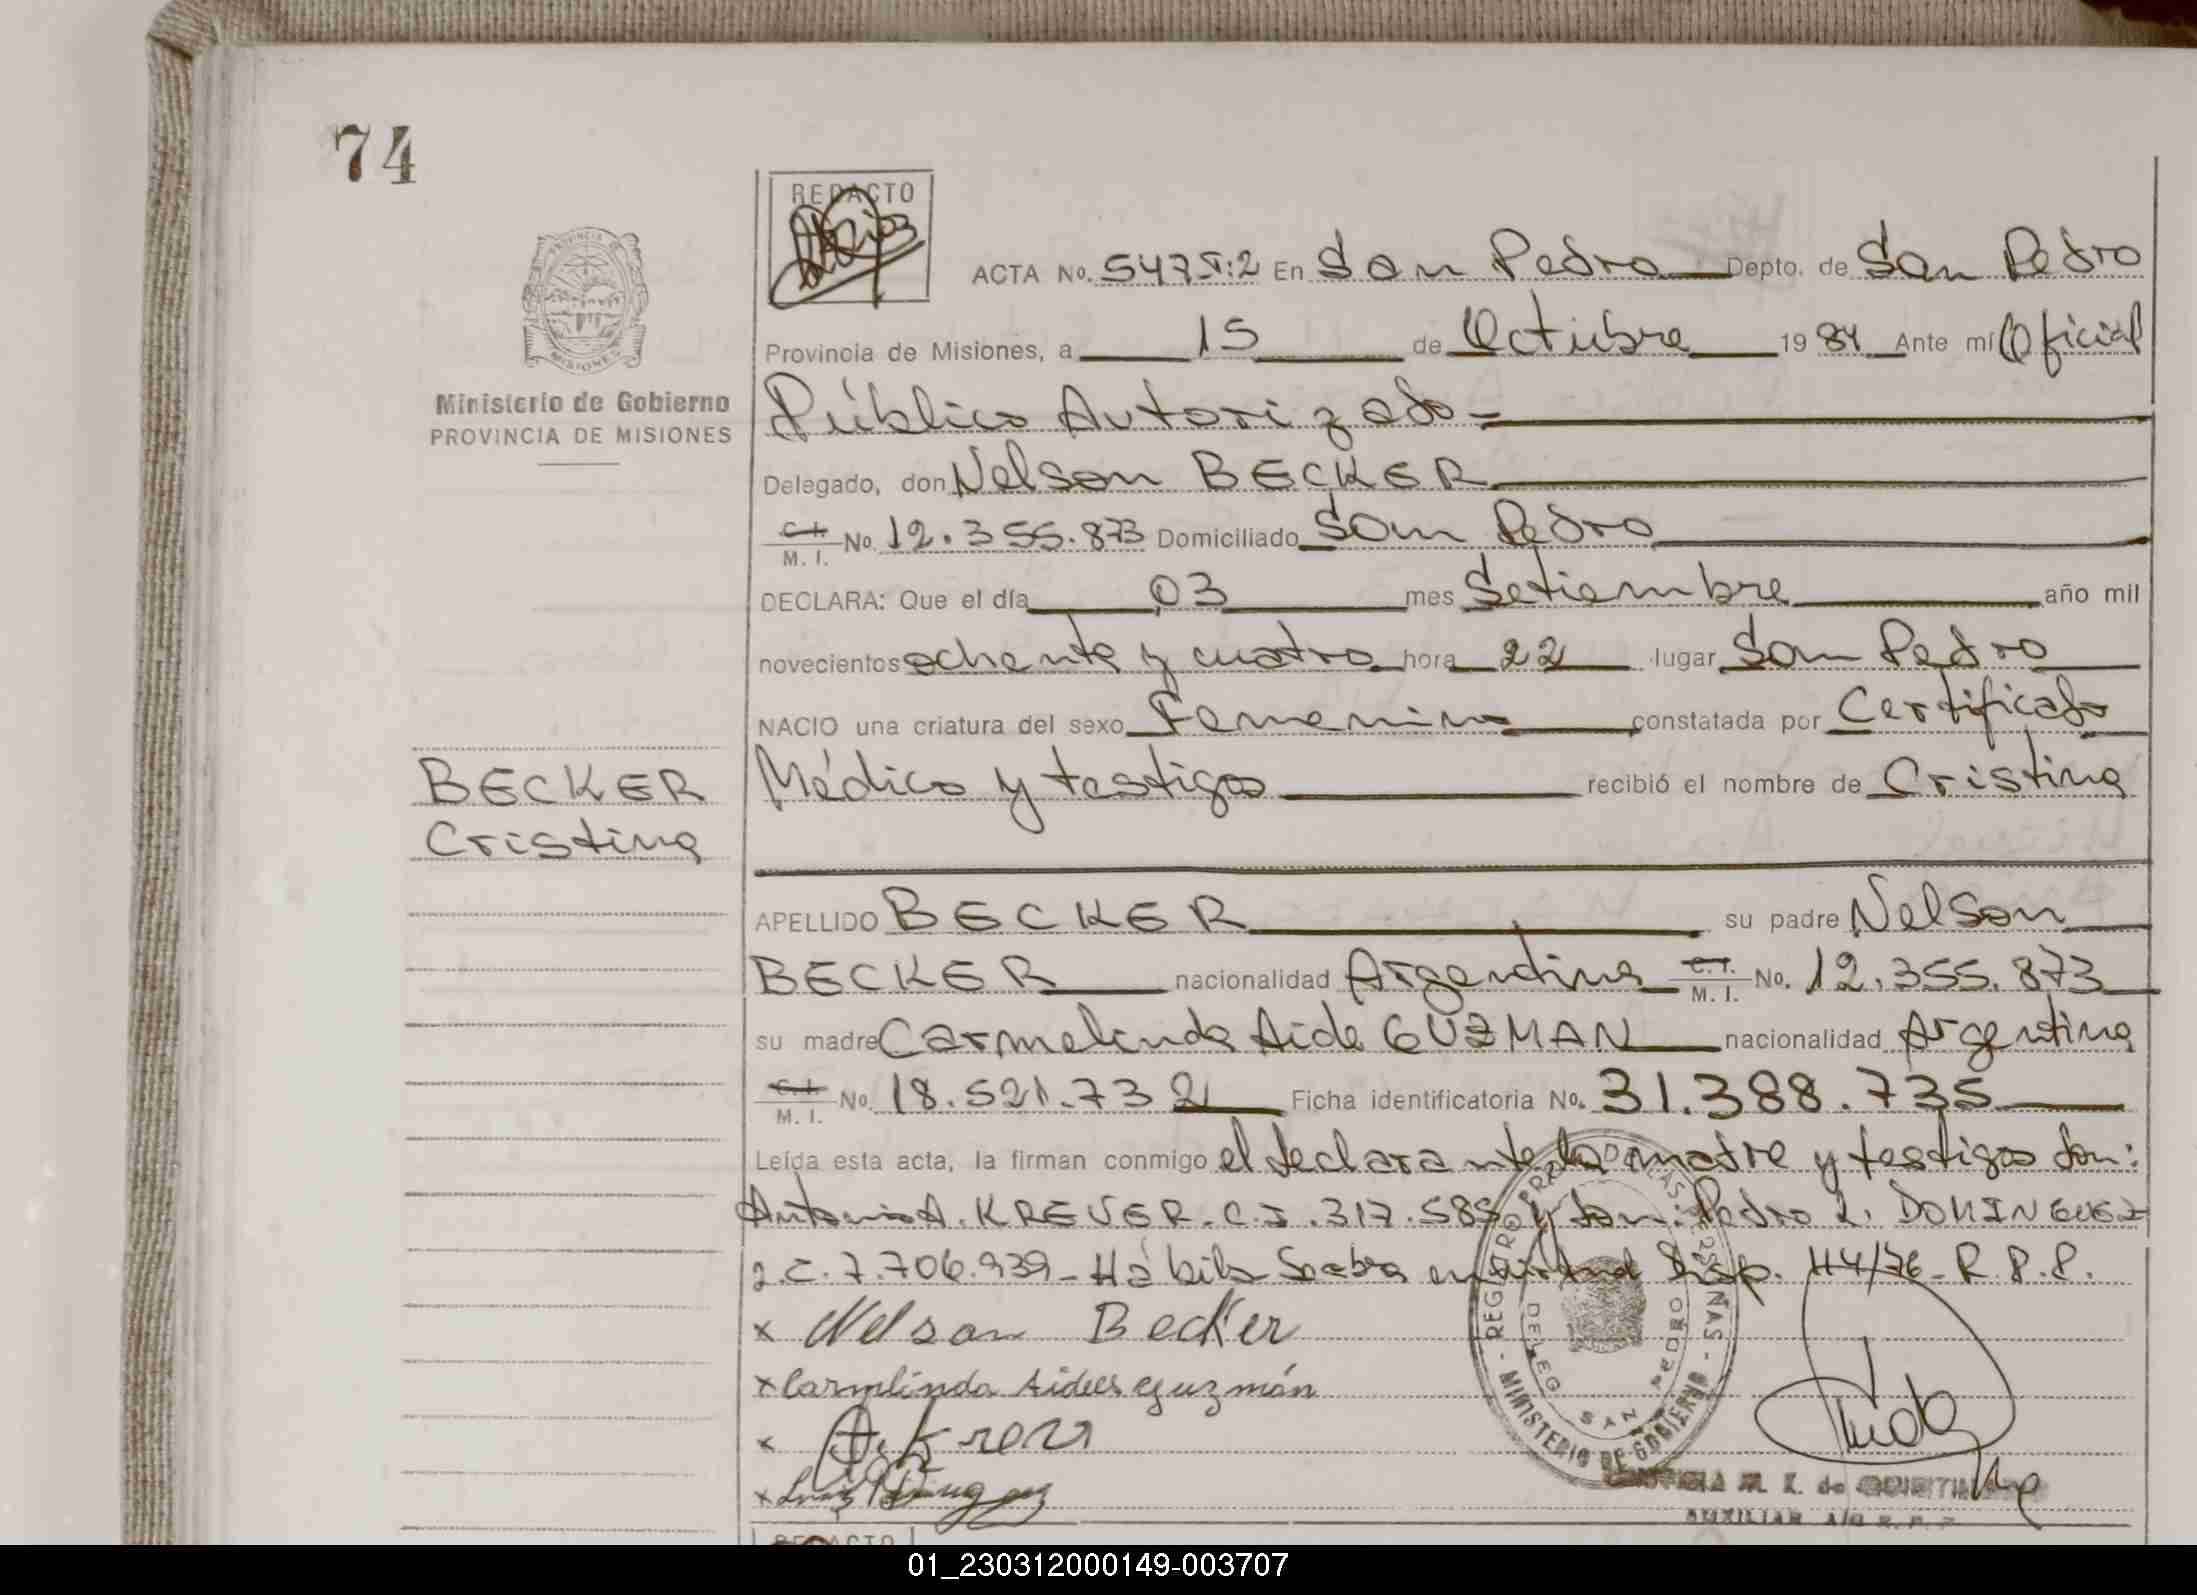 74
REDACTO
ACTA No. 547 T:2 En San Pedro Depto. de San Pedro
Provincia de Misiones, a 15 de Octubre 1984 Ante mí Oficial
PROVINCIA DE
MISIONES
Ministerio de Gobierno
PROVINCIA DE MISIONES
Público Autorizado=
Delegado, don Nelson BECKER
C.I. M. I. No. 12.355.873 Domiciliado San Pedro
DECLARA: Que el día 03 mes Setiembre año mil
novecientos ochenta y cuatro hora 22 lugar San Pedro
NACIO una criatura del sexo Femenino constatada por Certificado
Médico y testigos recibió el nombre de Cristina
BECKER
Cristina
APELLIDO BECKER su padre Nelson
BECKER nacionalidad Argentina C.I. M. I. No. 12.355.873
su madre Carmelinda Aide GUZMAN nacionalidad Argentina
C.I. M. I. No. 18.521.732 Ficha identificatoria No. 31.388.735
Leída esta acta, la firman conmigo el declarante, la madre y testigos don:
Antonio A. KREVER. C.I. 317.585 y don: Pedro L. DOMINGUEZ
7.706.939 - Hábil en virtud Disp. 114/76 - R.P.P.
x Nelson Becker
x Carmlinda Guzmán
x
x
REGISTRO PROV. DE LAS PERSONAS
MINISTERIO DE GOBIERNO
DELEG. SAN PEDRO
AUXILIAR
REDACTO
01_230312000149-003707